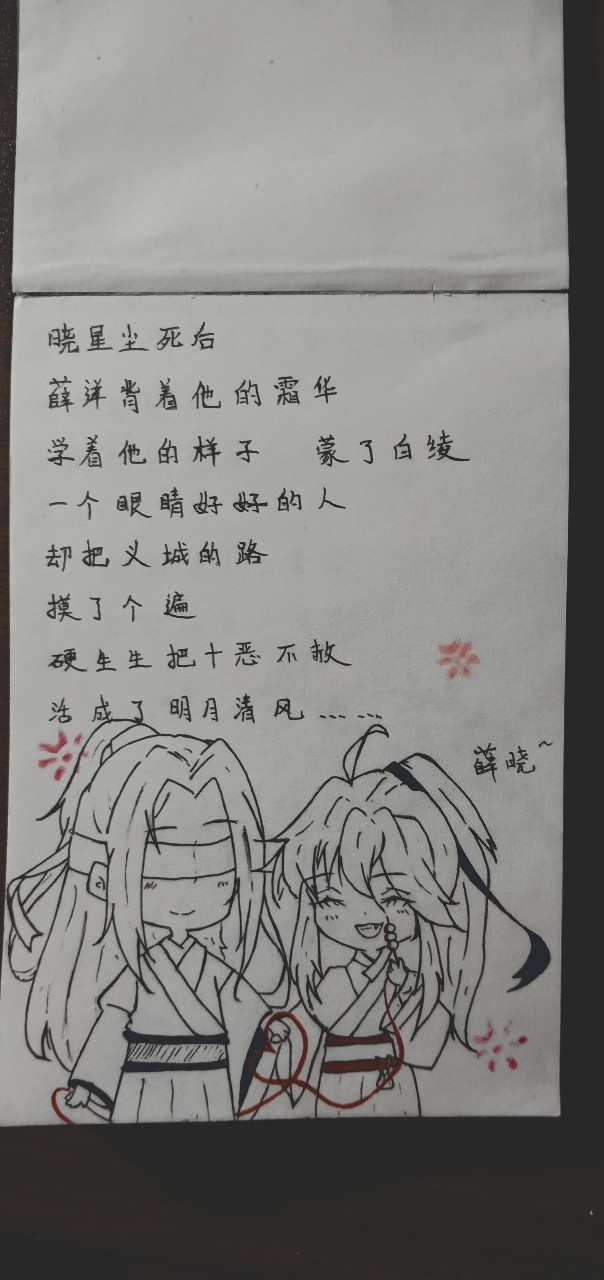 晓星尘死后
薛洋背着他的霜华
学着他的样子 蒙了白绫
一个眼睛好好的人
却把义城的路
摸了个遍
硬生生把十恶不赦
活成了明月清风……
薛晓~